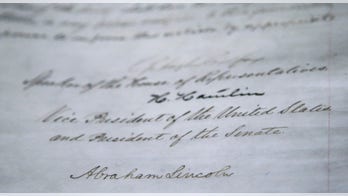 power to enforce this article by appropriate
Speaker of the House of Representatives.
H. Hamlin
Vice President of the United States
and President of the Senate.
Abraham Lincoln